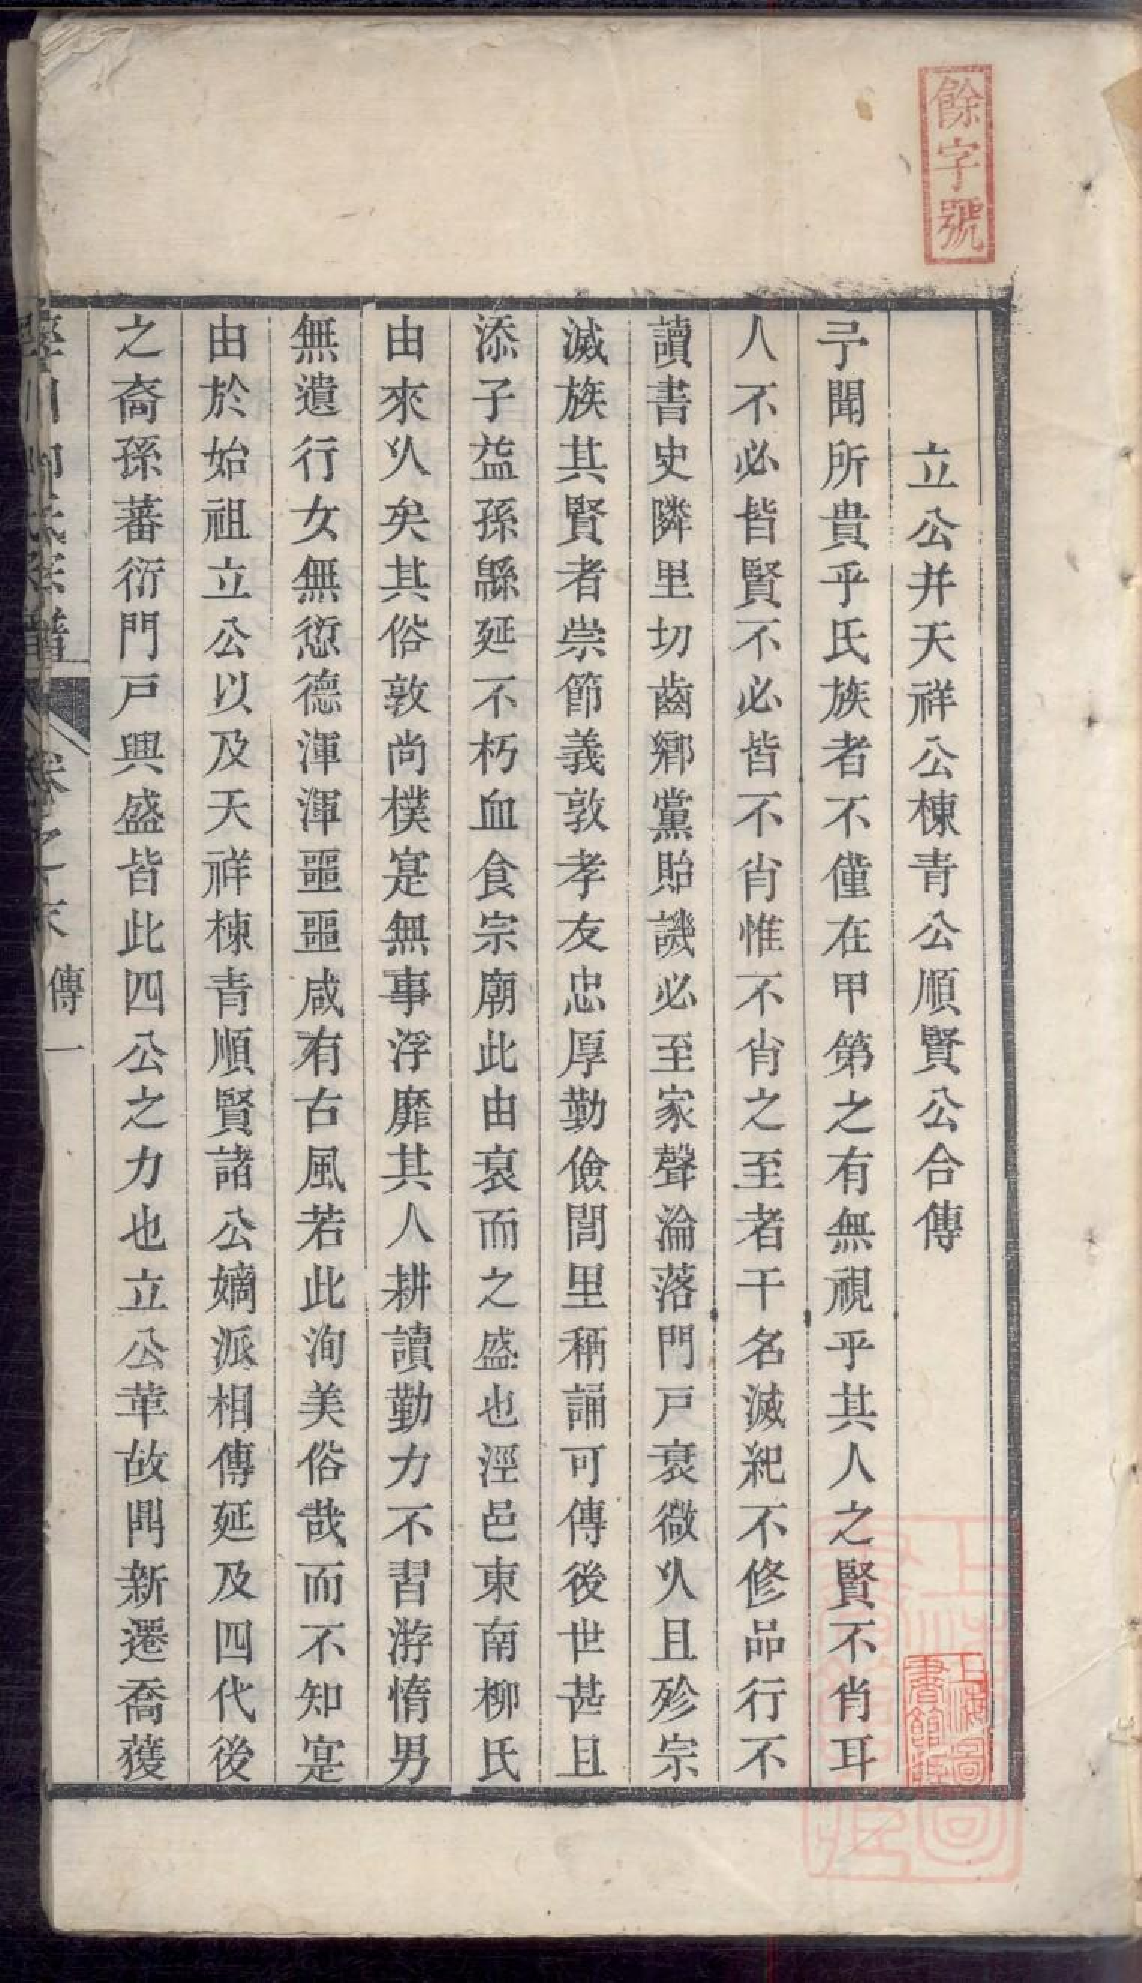 餘字號
立公并天祥公棟青公順賢公合傳
予聞所貴乎氏族者不僅在甲第之有無視乎其人之賢不肖耳
人不必皆賢不必皆不肖惟不肖之至者干名滅紀不修品行不
讀書史隣里切齒鄉黨貽譏必至家聲淪落門戸衰微乆且殄宗
滅族其賢者崇節義敦孝友忠厚勤儉閭里稱誦可傳後世甚且
添子益孫緜延不朽血食宗廟此由衰而之盛也涇邑東南柳氏
由來乆矣其俗敦尚樸寔無事浮靡其人耕讀勤力不習游惰男
無遺行女無愆德渾渾噩噩咸有古風若此洵美俗哉而不知寔
由於始祖立公以及天祥棟青順賢諸公嫡派相傳延及四代後
之裔孫蕃衍門戸興盛皆此四公之力也立公革故鼎新遷喬蒦
氏宗譜
卷之末 傳 一
上海圖書館藏